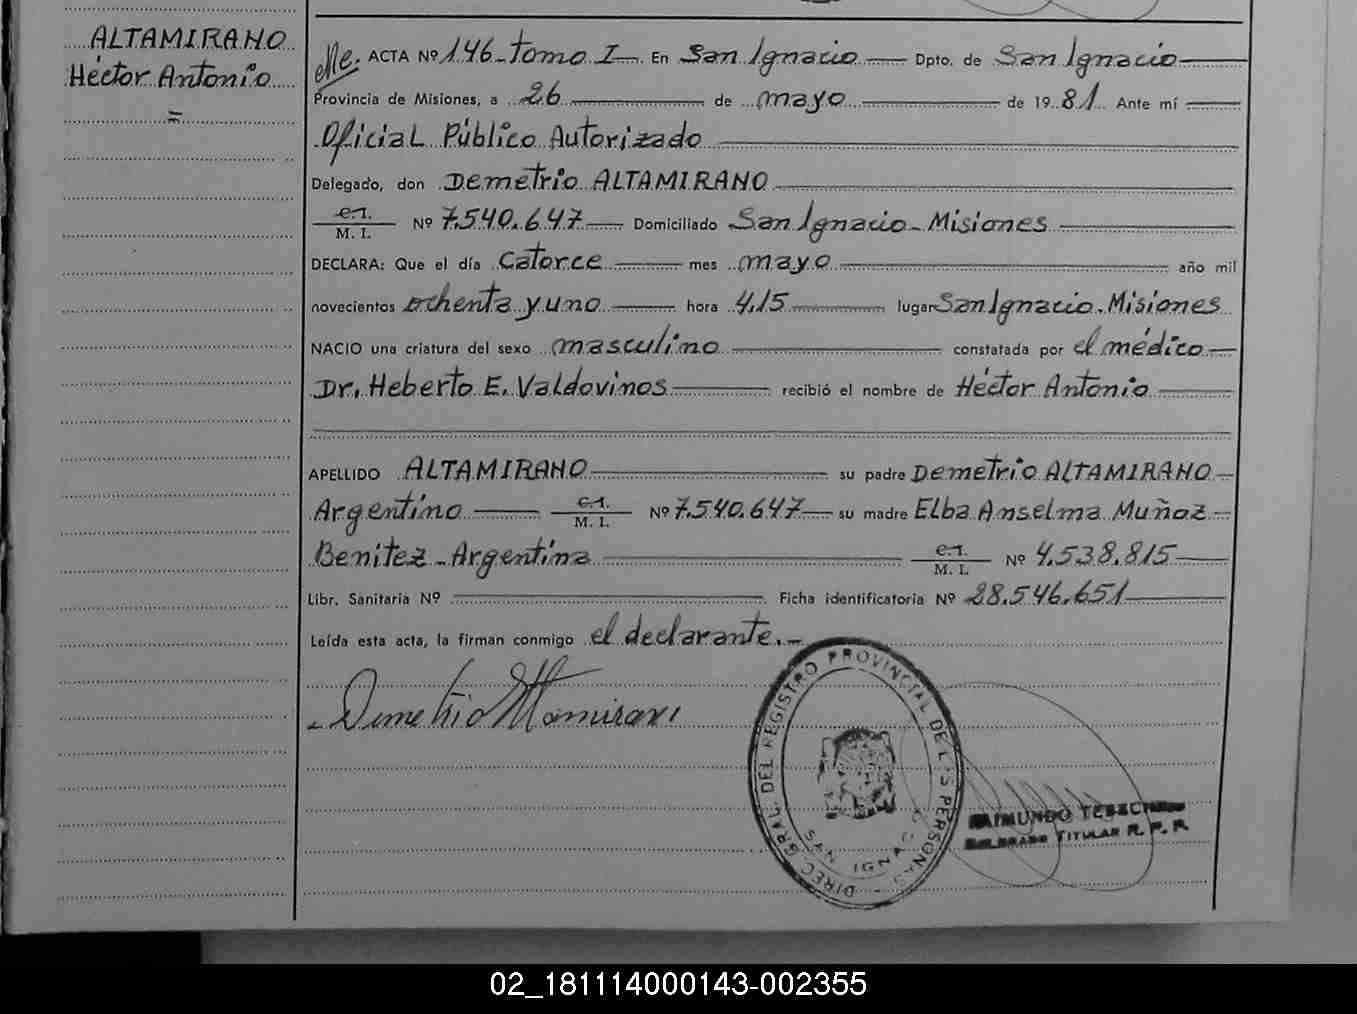 ALTAMIRANO
Héctor Antonio
=
ACTA Nº 146 - Tomo I - En San Ignacio Dpto. de San Ignacio
Provincia de Misiones, a 26 de mayo de 1981 Ante mí
Oficial Público Autorizado
Delegado, don Demetrio ALTAMIRANO
C.I.
M. I. Nº 7.540.647 Domiciliado San Ignacio - Misiones
DECLARA: Que el día Catorce mes mayo año mil
novecientos ochenta y uno hora 4,15 lugar San Ignacio - Misiones
NACIO una criatura del sexo masculino constatada por el médico
Dr. Heberto E. Valdovinos recibió el nombre de Héctor Antonio
APELLIDO ALTAMIRANO su padre Demetrio ALTAMIRANO
Argentino C.I. M. I. Nº 7.540.647 su madre Elba Anselma Muñoz
Benitez - Argentina C.I. M. I. Nº 4.538.815
Libr. Sanitaria Nº Ficha identificatoria Nº 28.546.651
Leída esta acta, la firman conmigo el declarante.-
Demetrio Altamirano
DIREC. GRAL. DEL REGISTRO PROVINCIAL DE LAS PERSONAS
SAN IGNACIO
TITULAR R. P. P.
02_181114000143-002355